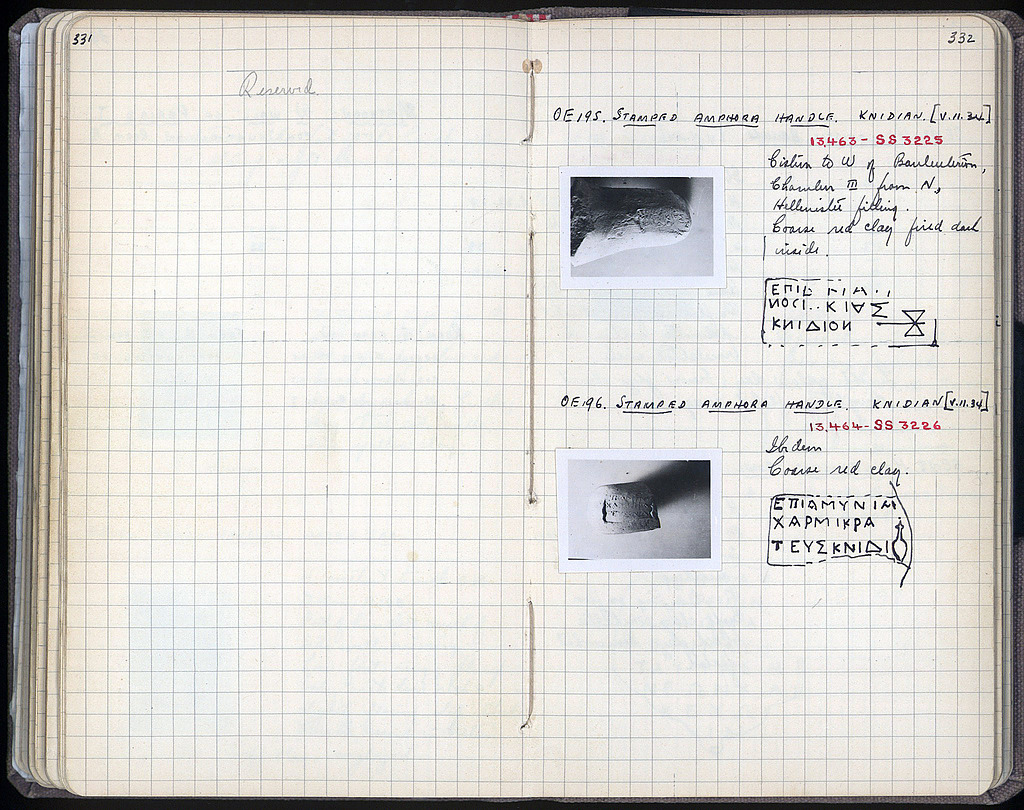 331
Reserved.
332
OE 195. STAMPED AMPHORA HANDLE. KNIDIAN. [V.11.34]
13,463 - SS 3225
Cistern to W of Bouleuterion,
Chamber III from N,
Hellenistic filling.
Coarse red clay fired dark
inside.
ΕΠΙ
ΝΟΣΙ..ΚΙΑΣ
ΚΝΙΔΙΟΝ
OE 196. STAMPED AMPHORA HANDLE. KNIDIAN [V.11.34]
13,464 - SS 3226
Ibidem
Coarse red clay.
ΕΠΙΑΜΥΝΤΑ
ΧΑΡΜΙΚΡΑ
ΤΕΥΣΚΝΙΔΙ